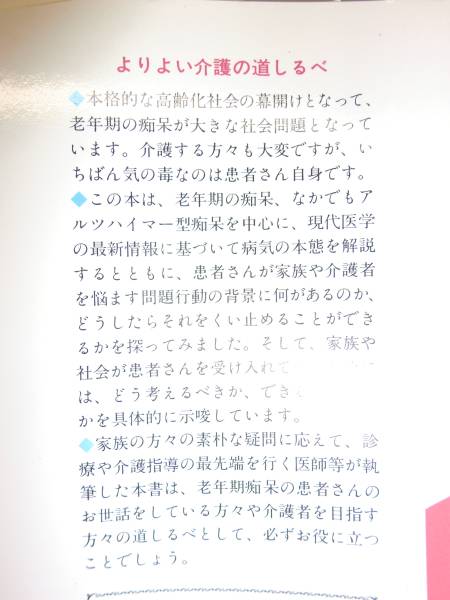 よりよい介護の道しるべ
◆本格的な高齢化社会の幕開けとなって、
老年期の痴呆が大きな社会問題となって
います。介護する方々も大変ですが、い
ちばん気の毒なのは患者さん自身です。
◆この本は、老年期の痴呆、なかでもア
ルツハイマー型痴呆を中心に、現代医学
の最新情報に基づいて病気の本態を解説
するとともに、患者さんが家族や介護者
を悩ます問題行動の背景に何があるのか、
どうしたらそれをくい止めることができ
るかを探ってみました。そして、家族や
社会が患者さんを受け入れて
は、どう考えるべきか、でき
かを具体的に示唆しています。
◆家族の方々の素朴な疑問に応えて、診
療や介護指導の最先端を行く医師等が執
筆した本書は、老年期痴呆の患者さんの
お世話をしている方々や介護者を目指す
方々の道しるべとして、必ずお役に立つ
ことでしょう。